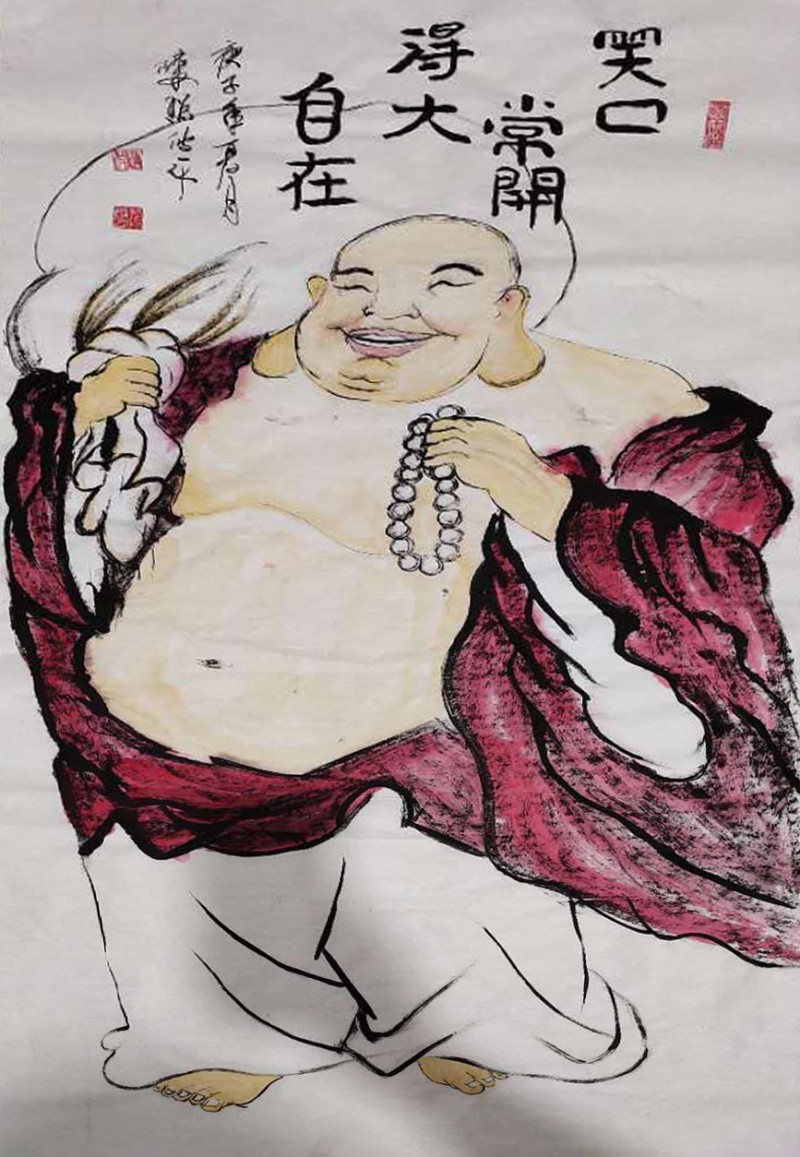 笑口
常開
得大
自在
庚子年夏月